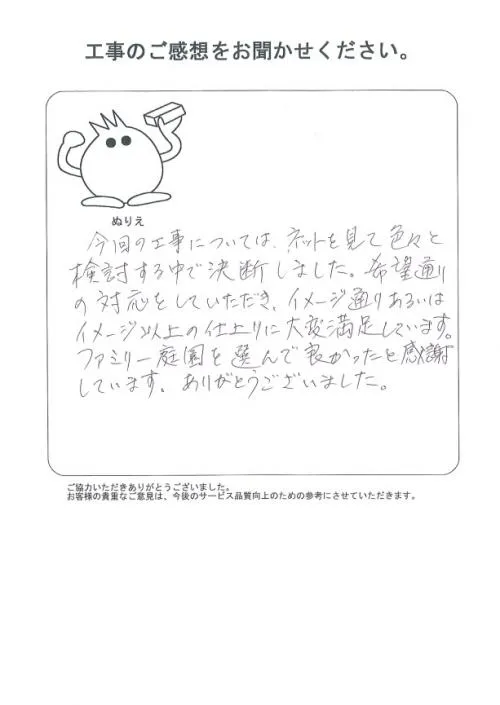 工事のご感想をお聞かせください。
ぬりえ
今回の工事については、ネットを見て色々と
検討する中で決断しました。希望通り
の対応をしていただき、イメージ通りあるいは
イメージ以上の仕上りに大変満足しています。
ファミリー庭園を選んで良かったと感謝
しています。ありがとうございました。
ご協力いただきありがとうございました。
お客様の貴重なご意見は、今後のサービス品質向上のための参考にさせていただきます。